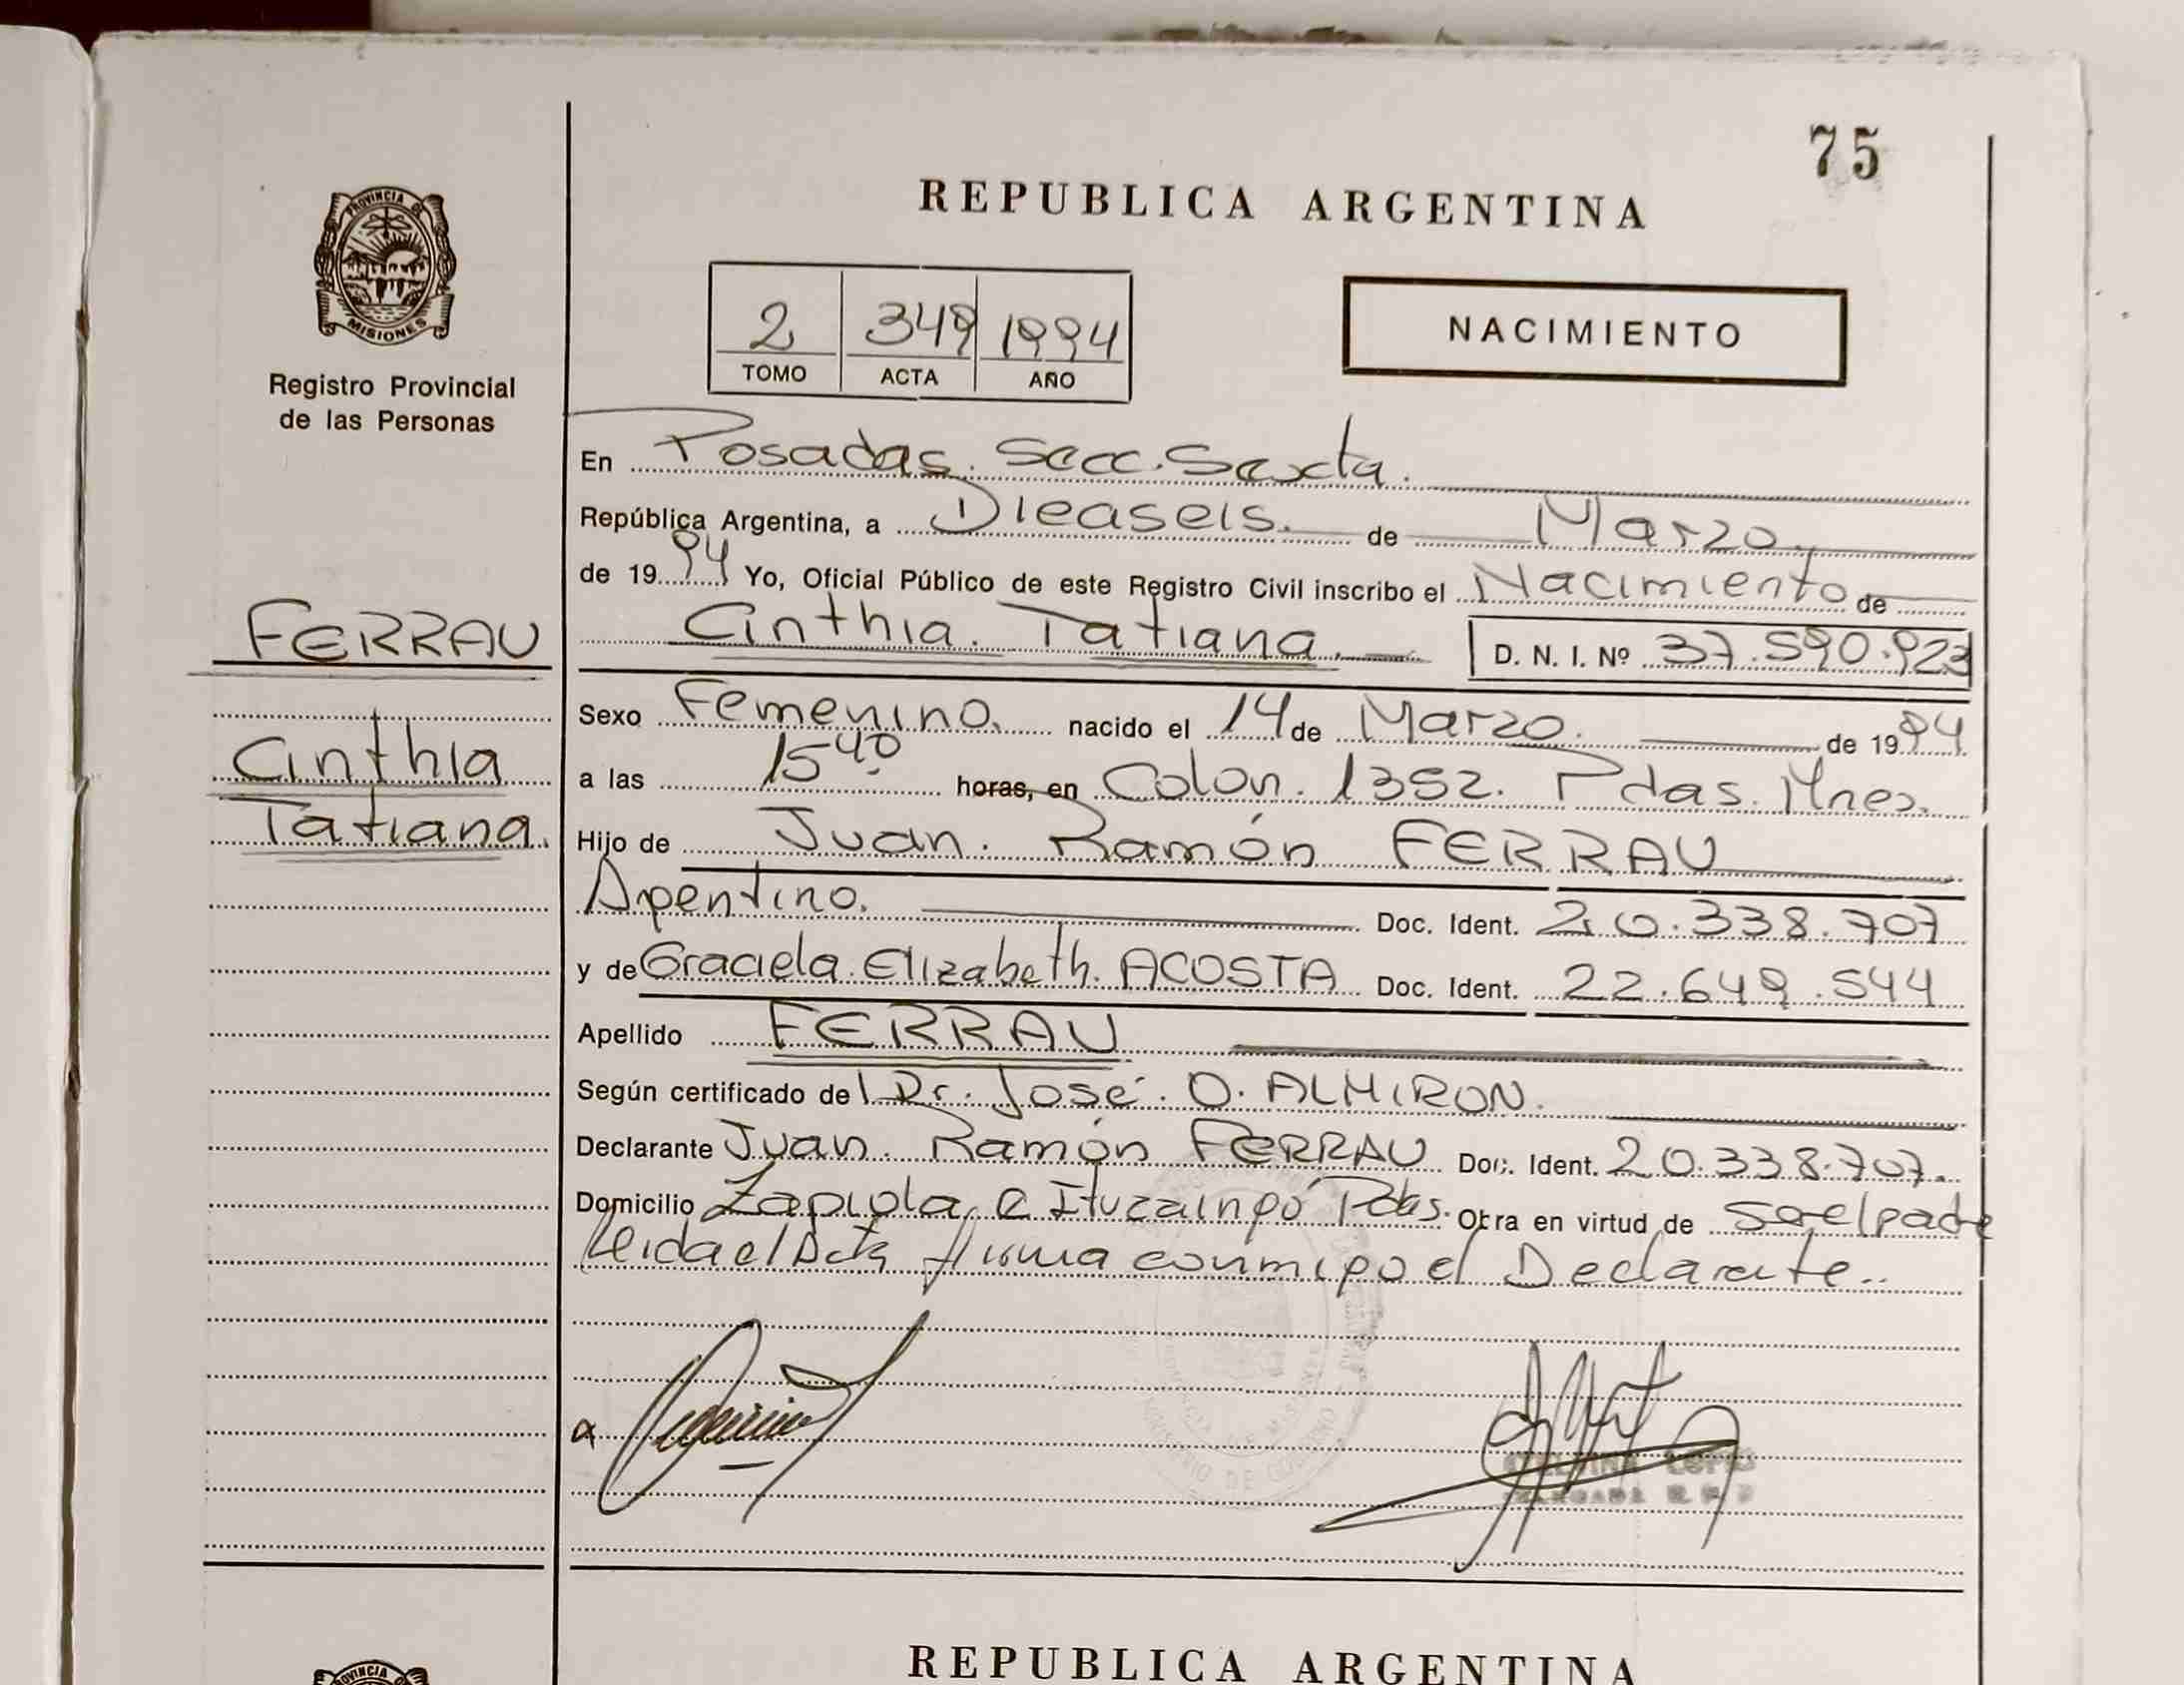 75
REPUBLICA ARGENTINA
PROVINCIA DE
MISIONES
Registro Provincial
de las Personas
2 349 1994
TOMO ACTA AÑO
NACIMIENTO
En Posadas. Secc. Sexta.
República Argentina, a Dieaseis. de Marzo.
de 1994 Yo, Oficial Público de este Registro Civil inscribo el Nacimiento de
FERRAU
Cinthia. Tatiana. D. N. I. Nº 37.590.923
Sexo Femenino. nacido el 14 de Marzo. de 1994
Cinthia
a las 15 40 horas, en Colon. 1352. Pdas. Mnes.
Tatiana.
Hijo de Juan. Ramón FERRAU
Argentino. Doc. Ident. 20.338.707
y de Graciela. Elizabeth. ACOSTA Doc. Ident. 22.649.544
Apellido FERRAU
Según certificado del Dr. José. O. ALMIRON.
Declarante Juan. Ramón FERRAU Doc. Ident. 20.338.707.
Domicilio Zapiola e Ituzaingó Pdas. Otra en virtud de ser el padre
Leida el Acta firma conmigo el Declarante..
REPUBLICA ARGENTINA
PROVINCIA